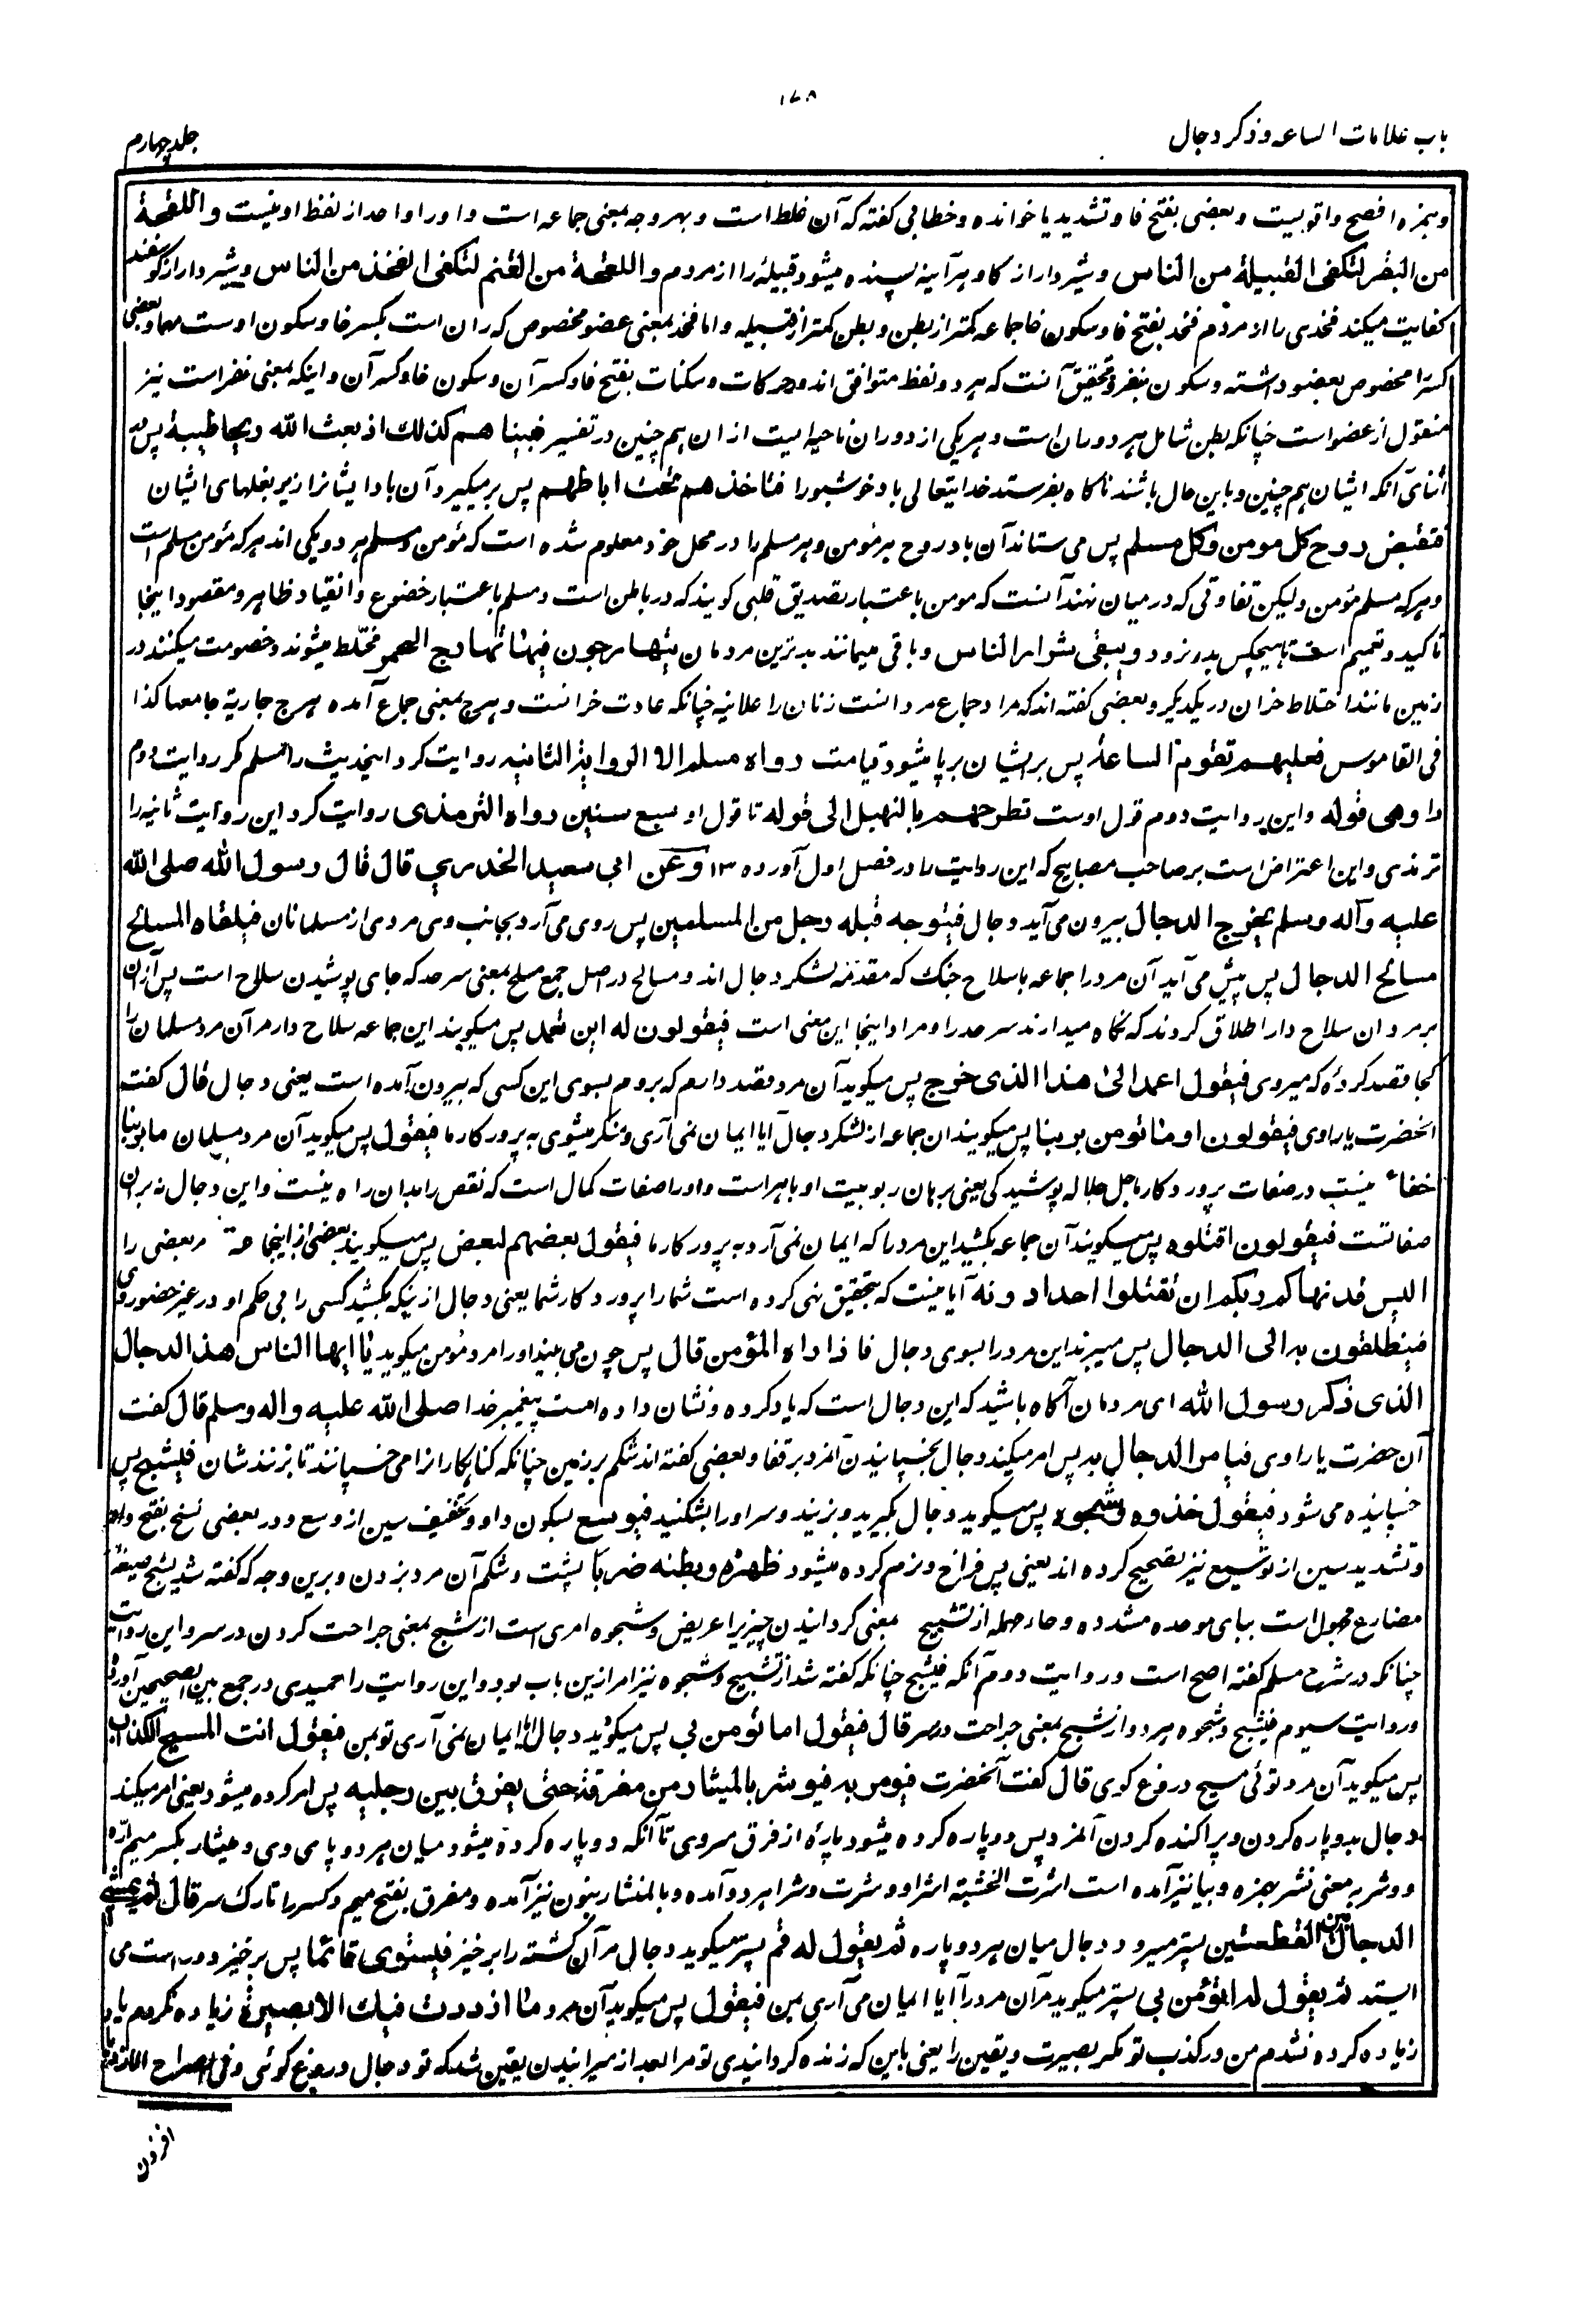 باب علامات الساعه وذكر دجال
جلد چهارم
وهمزه افصح واقویست و بعضی بفتح فا و تشدید یا خوانده و خطابی گفته که آن غلط است و بهر وجه بمعنی جماعه است و او را واحد از لفظ او نیست واللقحة
من البقر لتكفی القبيلة من الناس و شیردار از گاو هرآینه بسنده میشود قبیله را از مردم واللقحة من الغنم لتكفی الفخذ من الناس و شیردار از گوسفند
کفایت میکند فخذی را از مردم فخذ بفتح فا و سکون خا جماعه کمتر از بطن و بطن کمتر از قبیله و اما فخذ بمعنی عضو مخصوص که ران است بکسر خا و سکون اوست معا و بعضی
کسر را مخصوص بعضو داشته و سکون بنفر و تحقیق آنست که هر دو لفظ متوافق اند در حرکات و سکنات بفتح فا و کسر آن و سکون خا و کسر آن و اینکه بمعنی نفر است نیز
منقول از عضو است چنانکه بطن شامل هر دو ران است و هر یکی از دو ران ناحیه ایست از ان هم چنین در تفسیر فبينا هم كذلك اذ بعث الله ريحا طيبة پس در
اثنای آنکه ایشان هم چنین و باین حال باشند ناگاه بفرستد خدایتعالی باد خوشبو را فتاخذهم تحت اباطهم پس بر میگیرد آن باد ایشانرا زیر بغلهای ایشان
فتقبض روح كل مومن وكل مسلم پس می ستاند آن باد روح هر مومن و هر مسلم را در محل خود معلوم شده است که مؤمن و مسلم هر دو یکی اند هر که مؤمن مسلم است
و هر که مسلم مؤمن و لیکن تفاوتی که در میان نهند آنست که مومن باعتبار تصدیق قلبی گویند که در باطن است و مسلم باعتبار خضوع و انقیاد ظاهر و مقصود اینجا
تاکید و تعمیم است تا هیچکس بدر نرود ويبقی شرار الناس و باقی میمانند بدترین مردمان يتهارجون فيها تهارج الحمر مختلط میشوند و خصومت میکنند در
زمین مانند اختلاط خران در یکدیگر و بعضی گفته اند که مراد جماع مردانست زنان را علانیه چنانکه عادت خرانست و هرج بمعنی جماع آمده هرج جاریة جامعها کذا
فی القاموس فعليهم تقوم الساعة پس بر ایشان برپا میشود قیامت رواه مسلم الا الرواية الثانية روایت کرد این حدیث را مسلم مگر روایت دوم
را وهی قوله و این روایت دوم قول اوست تطرحهم بالنهبل الی قوله تا قول او سبع سنين رواه الترمذی روایت کرد این روایت ثانیه را
ترمذی و این اعتراض است بر صاحب مصابیح که این روایت را در فصل اول آورده ۱۳ وعن ابی سعيد الخدری قال قال رسول الله صلی الله
عليه وآله وسلم يخرج الدجال بیرون می آید دجال فيتوجه قبله رجل من المسلمين پس روی می آرد بجانب وی مردی از مسلمانان فيلقاه المسالح
مسالح الدجال پس پیش می آید آن مرد را جماعه باسلاح جنگ که مقدمه لشکر دجال اند و مسالح در اصل جمع مسلح بمعنی سرحد که جای پوشیدن سلاح است پس ازان
بر مردان سلاح دار اطلاق کردند که نگاه میدارند سرحد را و مراد اینجا این معنی است فيقولون له اين تعمد پس میگویند این جماعه سلاح دار مر آن مرد مسلمان را
کجا قصد کرده که میروی فيقول اعمد الی هذا الذی خرج پس میگوید آن مرد قصد دارم که بروم بسوی این کسی که بیرون آمده است یعنی دجال قال گفت
آنحضرت یا راوی فيقولون اوما تؤمن بربنا پس میگویند ان جماعه از لشکر دجال آیا ایمان نمی آری و منکر میشوی به پروردگار ما فيقول پس میگوید آن مرد مسلمان ما بربنا
خفاء نیست در صفات پروردگار ما جل جلاله پوشیدگی یعنی برهان ربوبیت او باهر است و او را صفات کمال است که نقص را بدان راه نیست و این دجال نه بران
صفاتست فيقولون اقتلوه پس میگویند آن جماعه بکشید این مرد را که ایمان نمی آرد به پروردگار ما فيقول بعضهم لبعض پس میگویند بعضی از اینجماعة مر بعضی را
اليس قد نهاكم ربكم ان تقتلوا احدا دونه آیا نیست که بتحقیق نهی کرده است شما را پروردگار شما یعنی دجال از نیکه بکشید کسی را بی حکم او و در غیر حضور وی
فينطلقون به الی الدجال پس میبرند این مرد را بسوی دجال فاذا راه المؤمن قال پس چون می بیند او را مرد مؤمن میگوید يا ايها الناس هذا الدجال
الذی ذكر رسول الله ای مردمان آگاه باشید که این دجال است که یاد کرده و نشان داده است پیغمبر خدا صلی الله عليه واله وسلم قال گفت
آن حضرت یا راوی فيامر الدجال به پس امر میکند دجال بخسپانیدن آنمرد بر قفا و بعضی گفته اند شکم بر زمین چنانکه گناهکار انرا می خسپانند تا بزنند شان فيشبح پس
خسپانیده می شود فيقول خذوه وشجوه پس میگوید دجال بگیرید و بزنید و سر او را بشکنید فيوسع بسکون واو و تخفیف سین از وسع و در بعضی نسخ بفتح واو
و تشدید سین از توسیع نیز تصحیح کرده اند یعنی پس فراخ و نرم کرده میشود ظهره وبطنه ضربا پشت و شکم آن مرد بزدن و برین وجه که گفته شد یشبح صیغه
مضارع مجهول است ببای موحده مشدده و حاء مهمله از تشبیح بمعنی گردانیدن چیزیرا عریض و شجوه امری است از شج بمعنی جراحت کردن در سر و این روایت
چنانکه در شرح مسلم گفته اصح است و روایت دوم آنکه فیشبح چنانکه گفته شد از تشبیح و شبحوه نیز امر ازین باب بود و این روایت را حمیدی در جمع بین الصحیحین آورده
و روایت سیوم فیشج و شجوه هر دو از شج بمعنی جراحت در سر قال فيقول اما تؤمن بی پس میگوید دجال آیا ایمان نمی آری تو بمن فيقول انت المسيح الكذاب
پس میگوید آن مرد توئی مسیح دروغ گوی قال گفت آنحضرت فيومر به فيوشر بالميشار من مفرقه حتی يفرق بين رجليه پس امر کرده میشود یعنی امر میکند
دجال بدو پاره کردن و پراکنده کردن آنمرد پس دوپاره کرده میشود باره از فرق سر وی تا آنکه دو پاره کرده میشود میان هر دو پای وی و میشار بکسر میم اره
و وشر به معنی نشر بهمزه و بیا نیز آمده است اشرت الخشبة اشرا و وشرت وشرا هر دو آمده و بالمنشار بنون نیز آمده و مفرق بفتح میم و کسر را تارک سر قال ثم يمشی
الدجال بين القطعتين پستر میرود دجال میان هر دو پاره ثم يقول له قم پستر میگوید دجال مر آن کشته را برخیز فيستوی قائما پس بر خیزد و راست می
ایستد ثم يقول له اتؤمن بی پستر میگوید مر آن مرد را آیا ایمان می آری بمن فيقول پس میگوید آن مرد ما ازددت فيك الا بصيرة زیاده نکردم یا
زیاده کرده نشدم من در کذب تو مگر بصیرت و یقین را یعنی باین که زنده گردانیدی تو مرا بعد از میرانیدن یقین شد که تو دجال دروغ گوئی وفی الصراح
افزدن